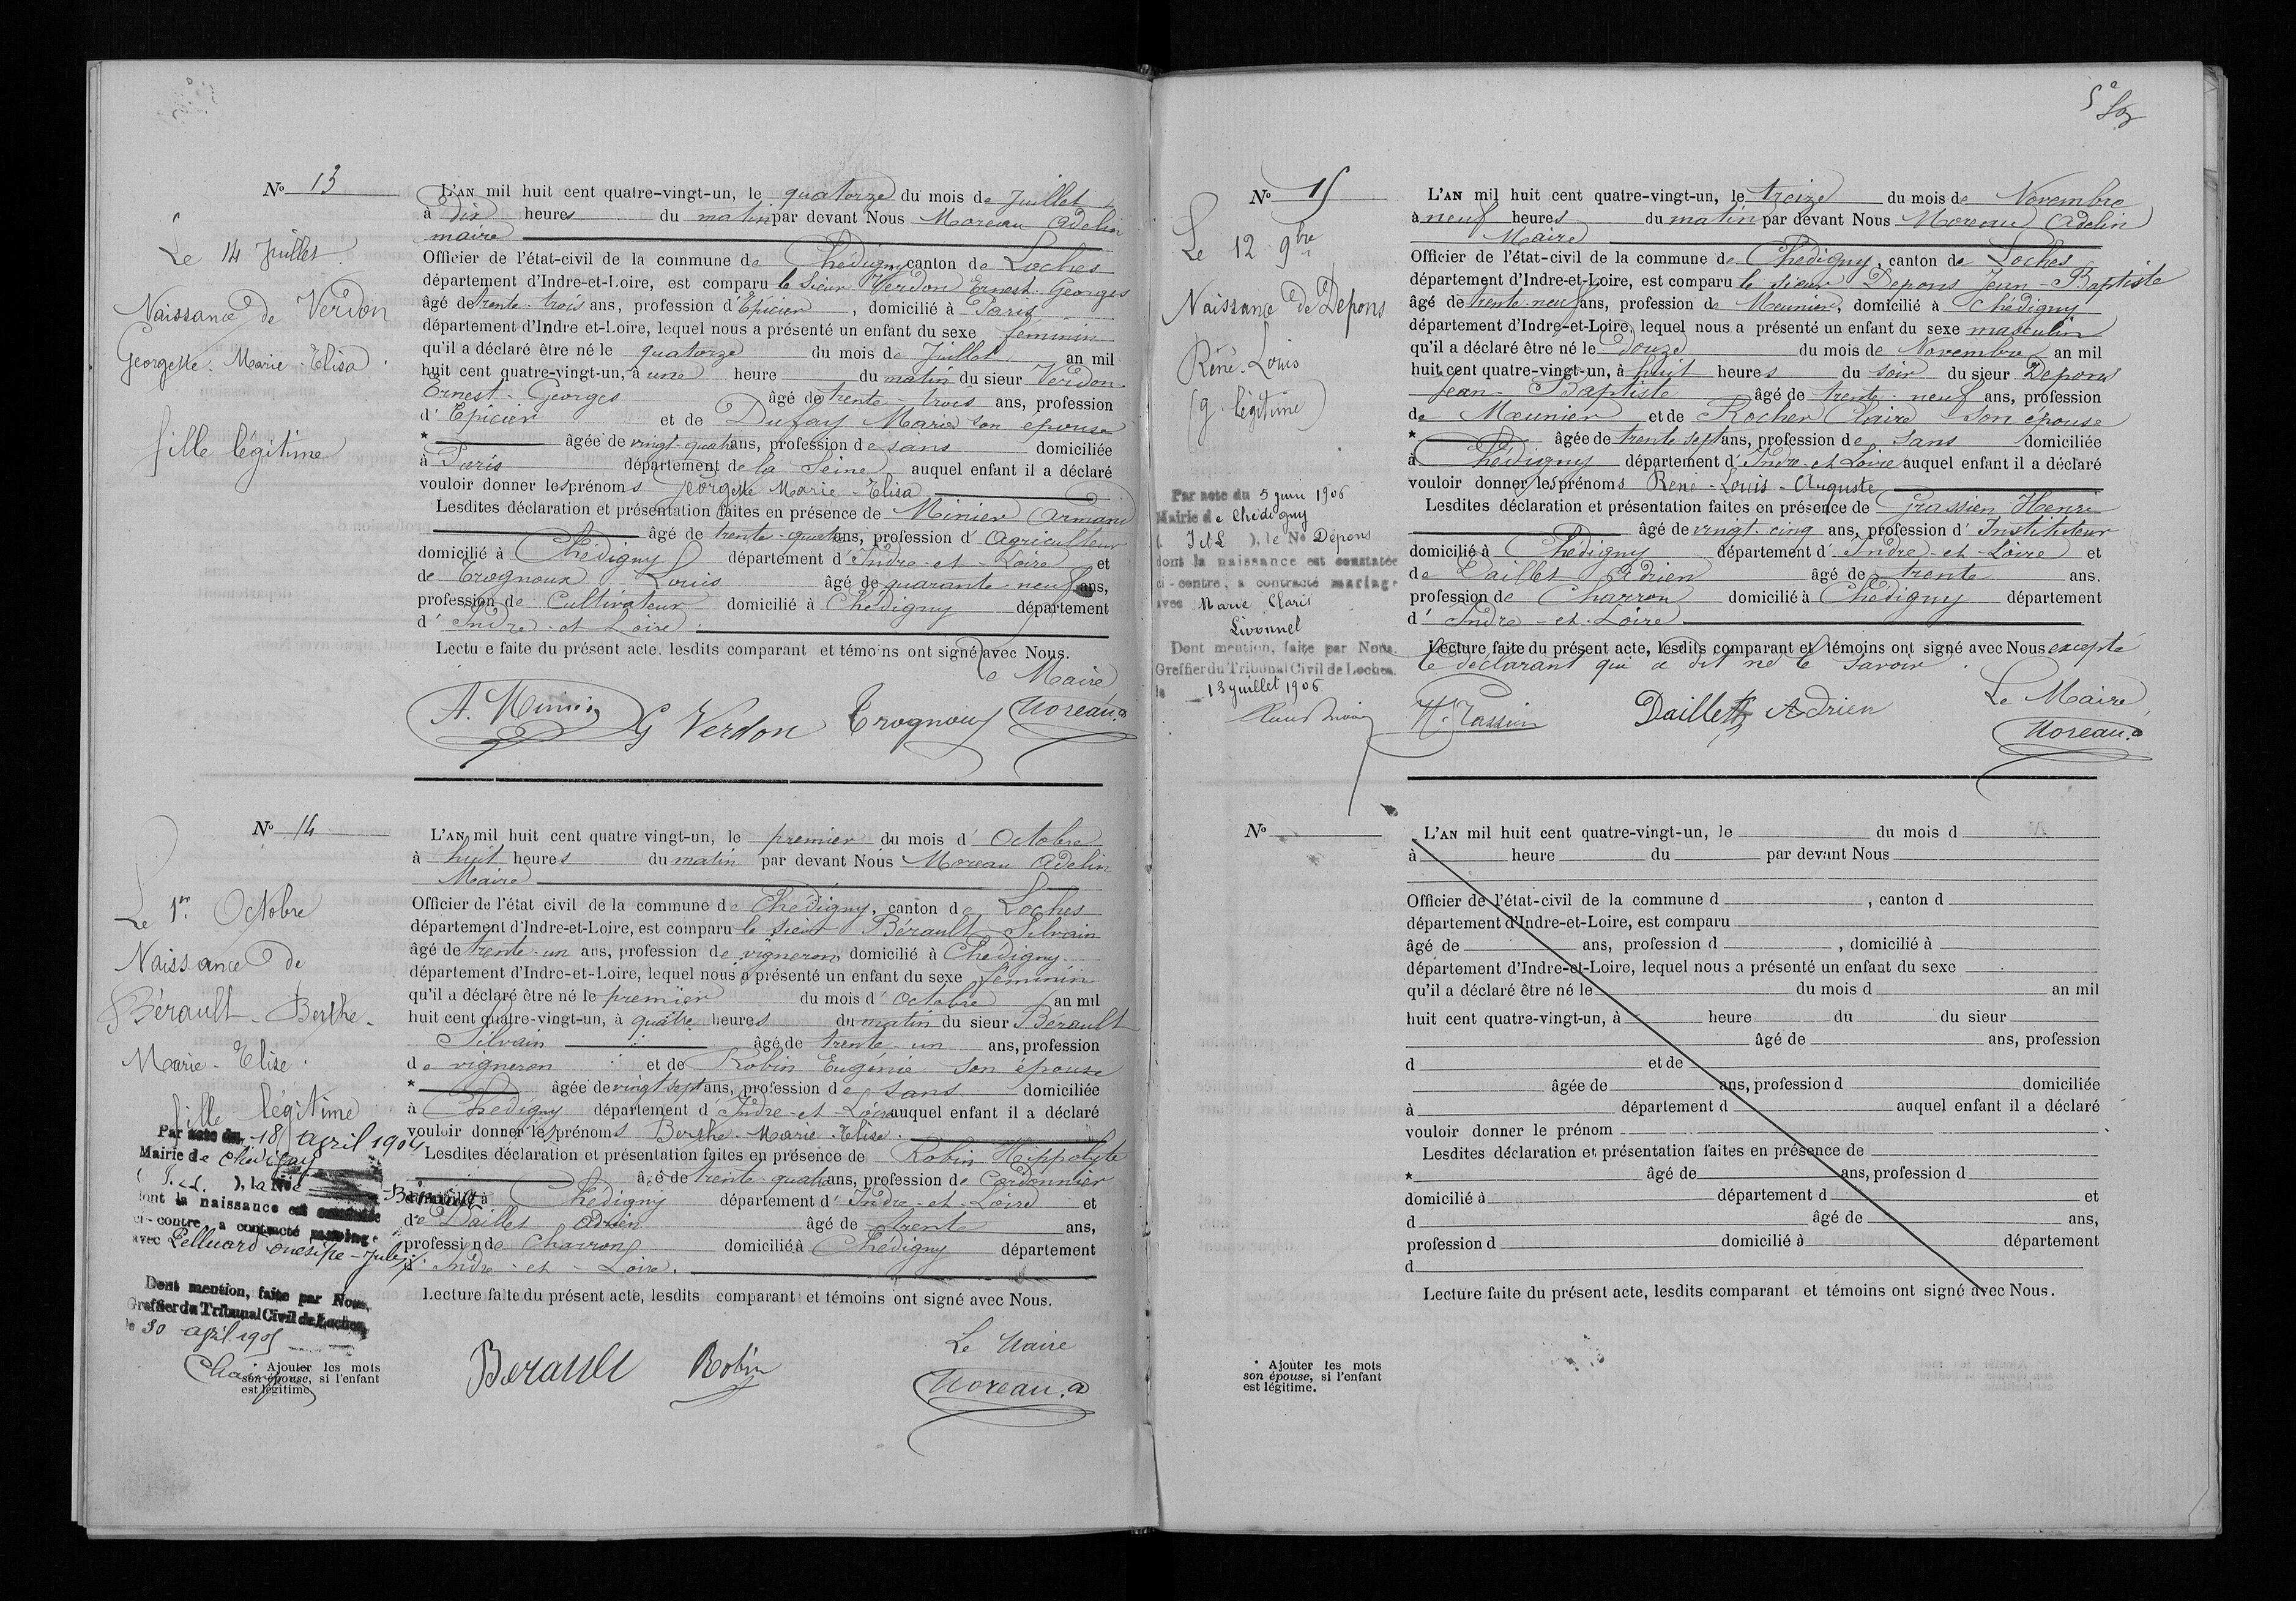 N° 13
Le 14 Juillet
Naissance de Verdon
Georgette. Marie-Elisa.
fille légitime
L'AN mil huit cent quatre-vingt-un, le quatorze du mois de Juillet
à dix heures du matin par devant Nous Moreau Adelin
maire
Officier de l'état-civil de la commune de Chédigny canton de Loches
département d'Indre-et-Loire, est comparu le sieur Verdon Ernest-Georges
âgé de trente-trois ans, profession d'Epicier, domicilié à Paris
département d'Indre et-Loire, lequel nous a présenté un enfant du sexe feminin
qu'il a déclaré être né le quatorze du mois de Juillet an mil
huit cent quatre-vingt-un, à une heure du matin du sieur Verdon
Ernest-Georges âgé de trente-trois ans, profession
d'Epicier et de Dufay Marie son épouse
* âgée de vingt-quatre ans, profession de sans domiciliée
à Paris département de la Seine auquel enfant il a déclaré
vouloir donner les prénoms Georgette Marie-Elisa
Lesdites déclaration et présentation faites en présence de Minier Armand
âgé de trente-quatre ans, profession d'Agriculteur
domicilié à Chédigny département d'Indre-et-Loire et
de Trognoux Louis âgé de quarante-neuf ans,
profession de Cultivateur domicilié à Chédigny département
d'Indre-et Loire.
Lectu e faite du présent acte, lesdits comparant et témoins ont signé avec Nous.
Le Maire
A. Minier G Verdon Trognoux Moreau.a
N° 14
Le 1er Octobre
Naissance de
Bérault-Berthe-
Marie-Elise.
fille légitime
Par acte du 18 avril 1904
Mairie de Chédigny
( I.-L. ), la Née Bérault
dont la naissance est constatée
ci-contre, a contracté mariage
avec Lelluard onésipe-Jules
Dont mention, faite par Nous,
Greffier du Tribunal Civil de Loches,
le 30 avril 1905
* Ajouter les mots
son épouse, si l'enfant
est légitime
L'AN mil huit cent quatre vingt-un, le premier du mois d'Octobre
à huit heures du matin par devant Nous Moreau Adelin
Maire
Officier de l'état civil de la commune de Chédigny, canton de Loches
département d'Indre-et-Loire, est comparu le sieur Bérault Silvain
âgé de trente-un ans, profession de vigneron, domicilié à Chédigny.
département d'Indre-et-Loire, lequel nous a présenté un enfant du sexe féminin
qu'il a déclaré être né le premier du mois d'octobre an mil
huit cent quatre-vingt-un, à quatre heures du matin du sieur Bérault
Silvain âgé de trente-un ans, profession
de vigneron et de Robin Eugénie son épouse
* âgée de vingt sept ans, profession de sans domiciliée
à Chédigny département d'Indre-et-Loire auquel enfant il a déclaré
vouloir donner les prénoms Berthe-Marie-Elise.
Lesdites déclaration et présentation faites en présence de Robin Hippolyte
âgé de trente-quatre ans, profession de Cordonnier
domicilié à Chédigny département d'Indre-et-Loire et
de Daillet Adrien âgé de trente ans,
profession de Charron domicilié à Chédigny département
d'Indre-et-Loire.
Lecture faite du présent acte, lesdits comparant et témoins ont signé avec Nous.
Le Maire
Berault Robin Moreau.a
5e
N° 15
Le 12 9bre
Naissance de Depons
Réné-Louis
(g. légitime)
Par acte du 5 juin 1906
Mairie de Chédigny
( I&L ), le Né Depons
dont la naissance est constatée
ci-contre, a contracté mariage
avec Marie Claris
Livonnel
Dont mention, faite par Nous,
Greffier du Tribunal Civil de Loches.
le 13 juillet 1906
L'AN mil huit cent quatre-vingt-un, le treize du mois de Novembre
à neuf heures du matin par devant Nous Moreau Adelin
Maire
Officier de l'état-civil de la commune de Chédigny, canton de Loches
département d'Indre-et-Loire, est comparu le sieur Depons Jean-Baptiste
âgé de trente-neuf ans, profession de Meunier, domicilié à Chédigny
département d'Indre-et-Loire, lequel nous a présenté un enfant du sexe masculin
qu'il a déclaré être né le douze du mois de Novembre an mil
huit cent quatre-vingt-un, à huit heures du soir du sieur Depons
Jean-Baptiste âgé de trente-neuf ans, profession
de Meunier et de Rocher Claire son épouse
* âgée de trente sept ans, profession de sans domiciliée
à Chédigny département d'Indre-et Loire auquel enfant il a déclaré
vouloir donner les prénoms René-Louis-Auguste
Lesdites déclaration et présentation faites en présence de Grassien Henri
âgé de vingt-cinq ans, profession d'Instituteur
domicilié à Chédigny département d'Indre-et-Loire et
de Daillet Adrien âgé de trente ans.
profession de Charron domicilié à Chédigny département
d'Indre-et-Loire
Lecture faite du présent acte, lesdits comparant et témoins ont signé avec Nous excepté
le déclarant qui a dit ne le savoir.
Le Maire
Daillet Adrien Moreau.a
N°
L'AN mil huit cent quatre-vingt-un, le du mois d
à heure du par devant Nous
Officier de l'état-civil de la commune d , canton d
département d'Indre-et-Loire, est comparu
âgé de ans, profession d , domicilié à
département d'Indre-et-Loire, lequel nous a présenté un enfant du sexe
qu'il a déclaré être né le du mois d an mil
huit cent quatre-vingt-un, à heure du du sieur
âgé de ans, profession
d et de
âgée de ans, profession d domiciliée
à département d auquel enfant il a déclaré
vouloir donner le prénom
Lesdites déclaration et présentation faites en présence de
* âgé de ans, profession d
domicilié à département d et
d âgé de ans,
profession d domicilié à département
d
Lecture faite du présent acte, lesdits comparant et témoins ont signé avec Nous.
* Ajouter les mots
son épouse, si l'enfant
est légitime.